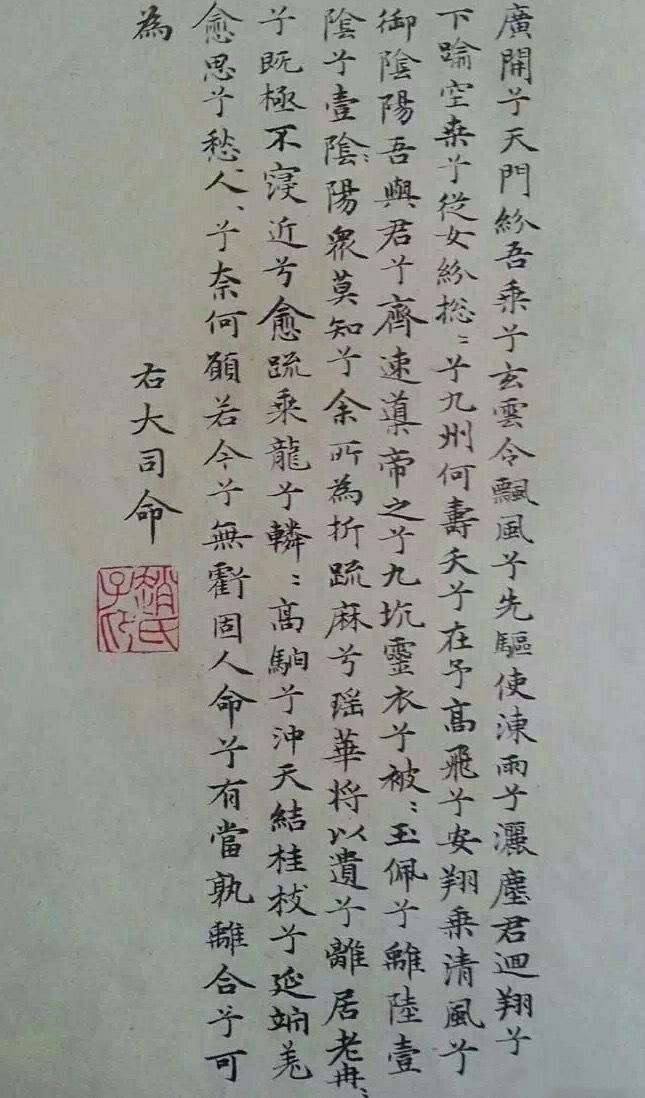 廣開兮天門紛吾乘兮玄雲令飄風兮先驅使涷雨兮灑塵君迴翔兮
下踰空桒兮從女紛捴〻兮九州何壽夭兮在予高飛兮安翔乘清風兮
御陰陽吾與君兮齊速導帝之兮九坑靈衣兮被〻玉佩兮離陸壹
陰兮壹陰〻陽衆莫知兮余所為折疏麻兮瑶華将以遺兮離居老冉〻
兮既極不寖近兮愈疏乘龍兮轔〻高駉兮沖天結桂枝兮延竚羌
愈思兮愁人〻兮奈何願若今兮無虧固人命兮有當孰離合兮可
為
右大司命
趙氏子昂